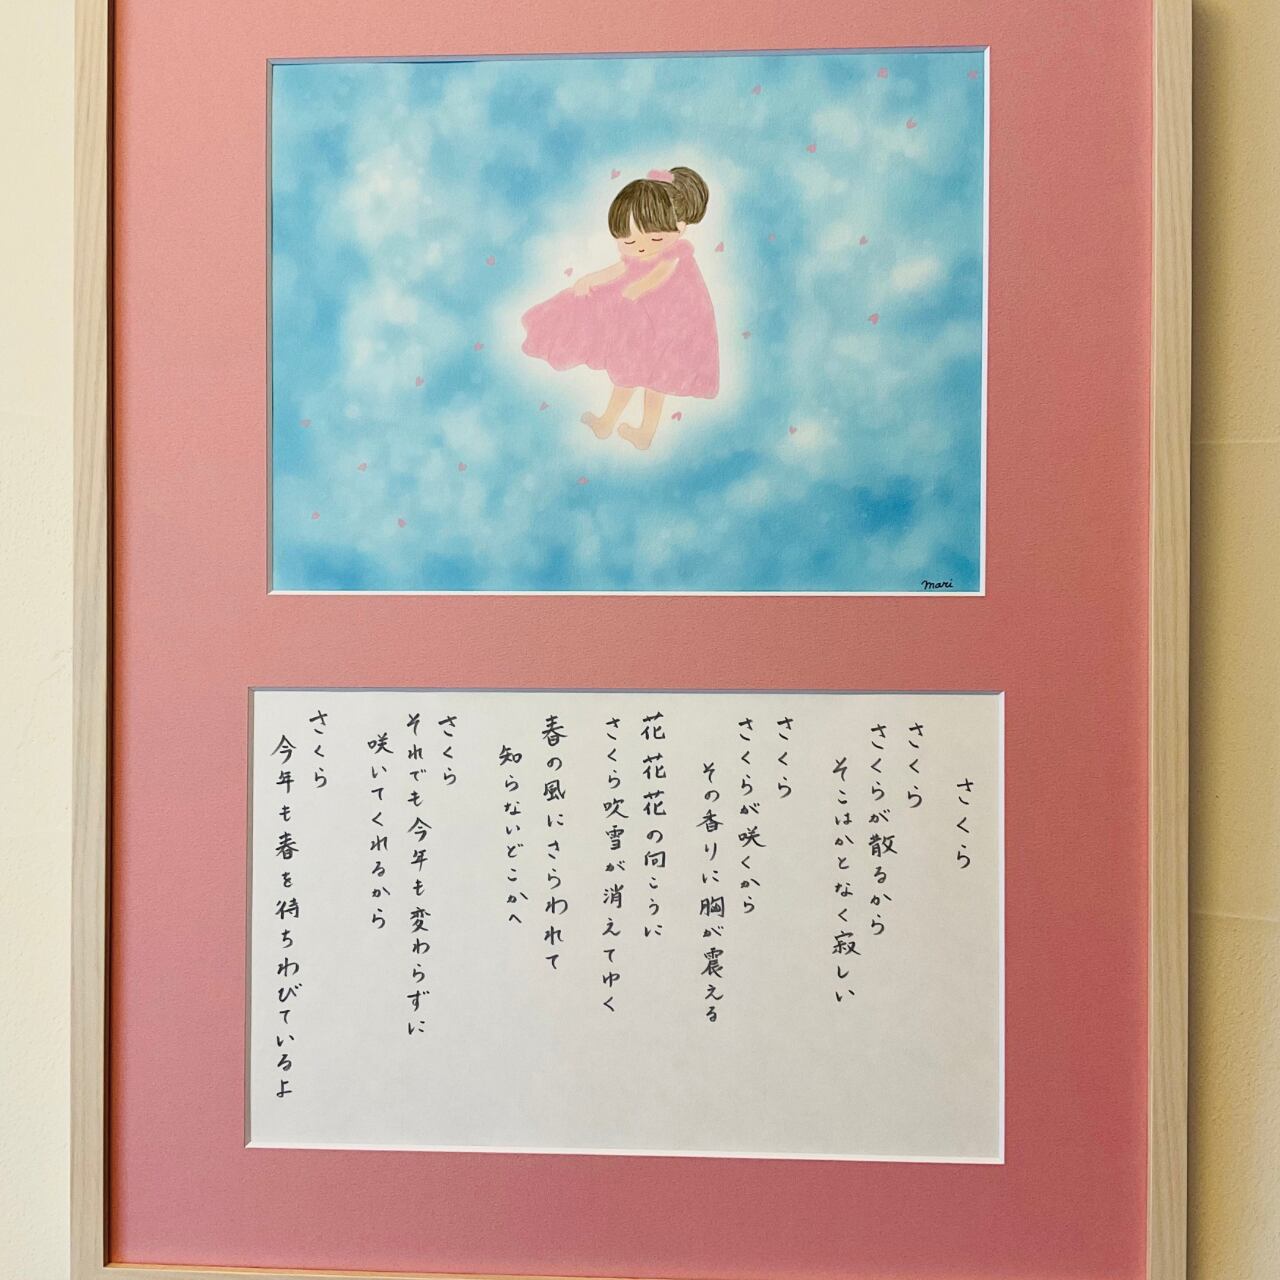 mari
さくら
さくら
さくらが散るから
そこはかとなく寂しい
さくら
さくらが咲くから
その香りに胸が震える
花花花の向こうに
さくら吹雪が消えてゆく
春の風にさらわれて
知らないどこかへ
さくら
それでも今年も変わらずに
咲いてくれるから
さくら
今年も春を待ちわびているよ